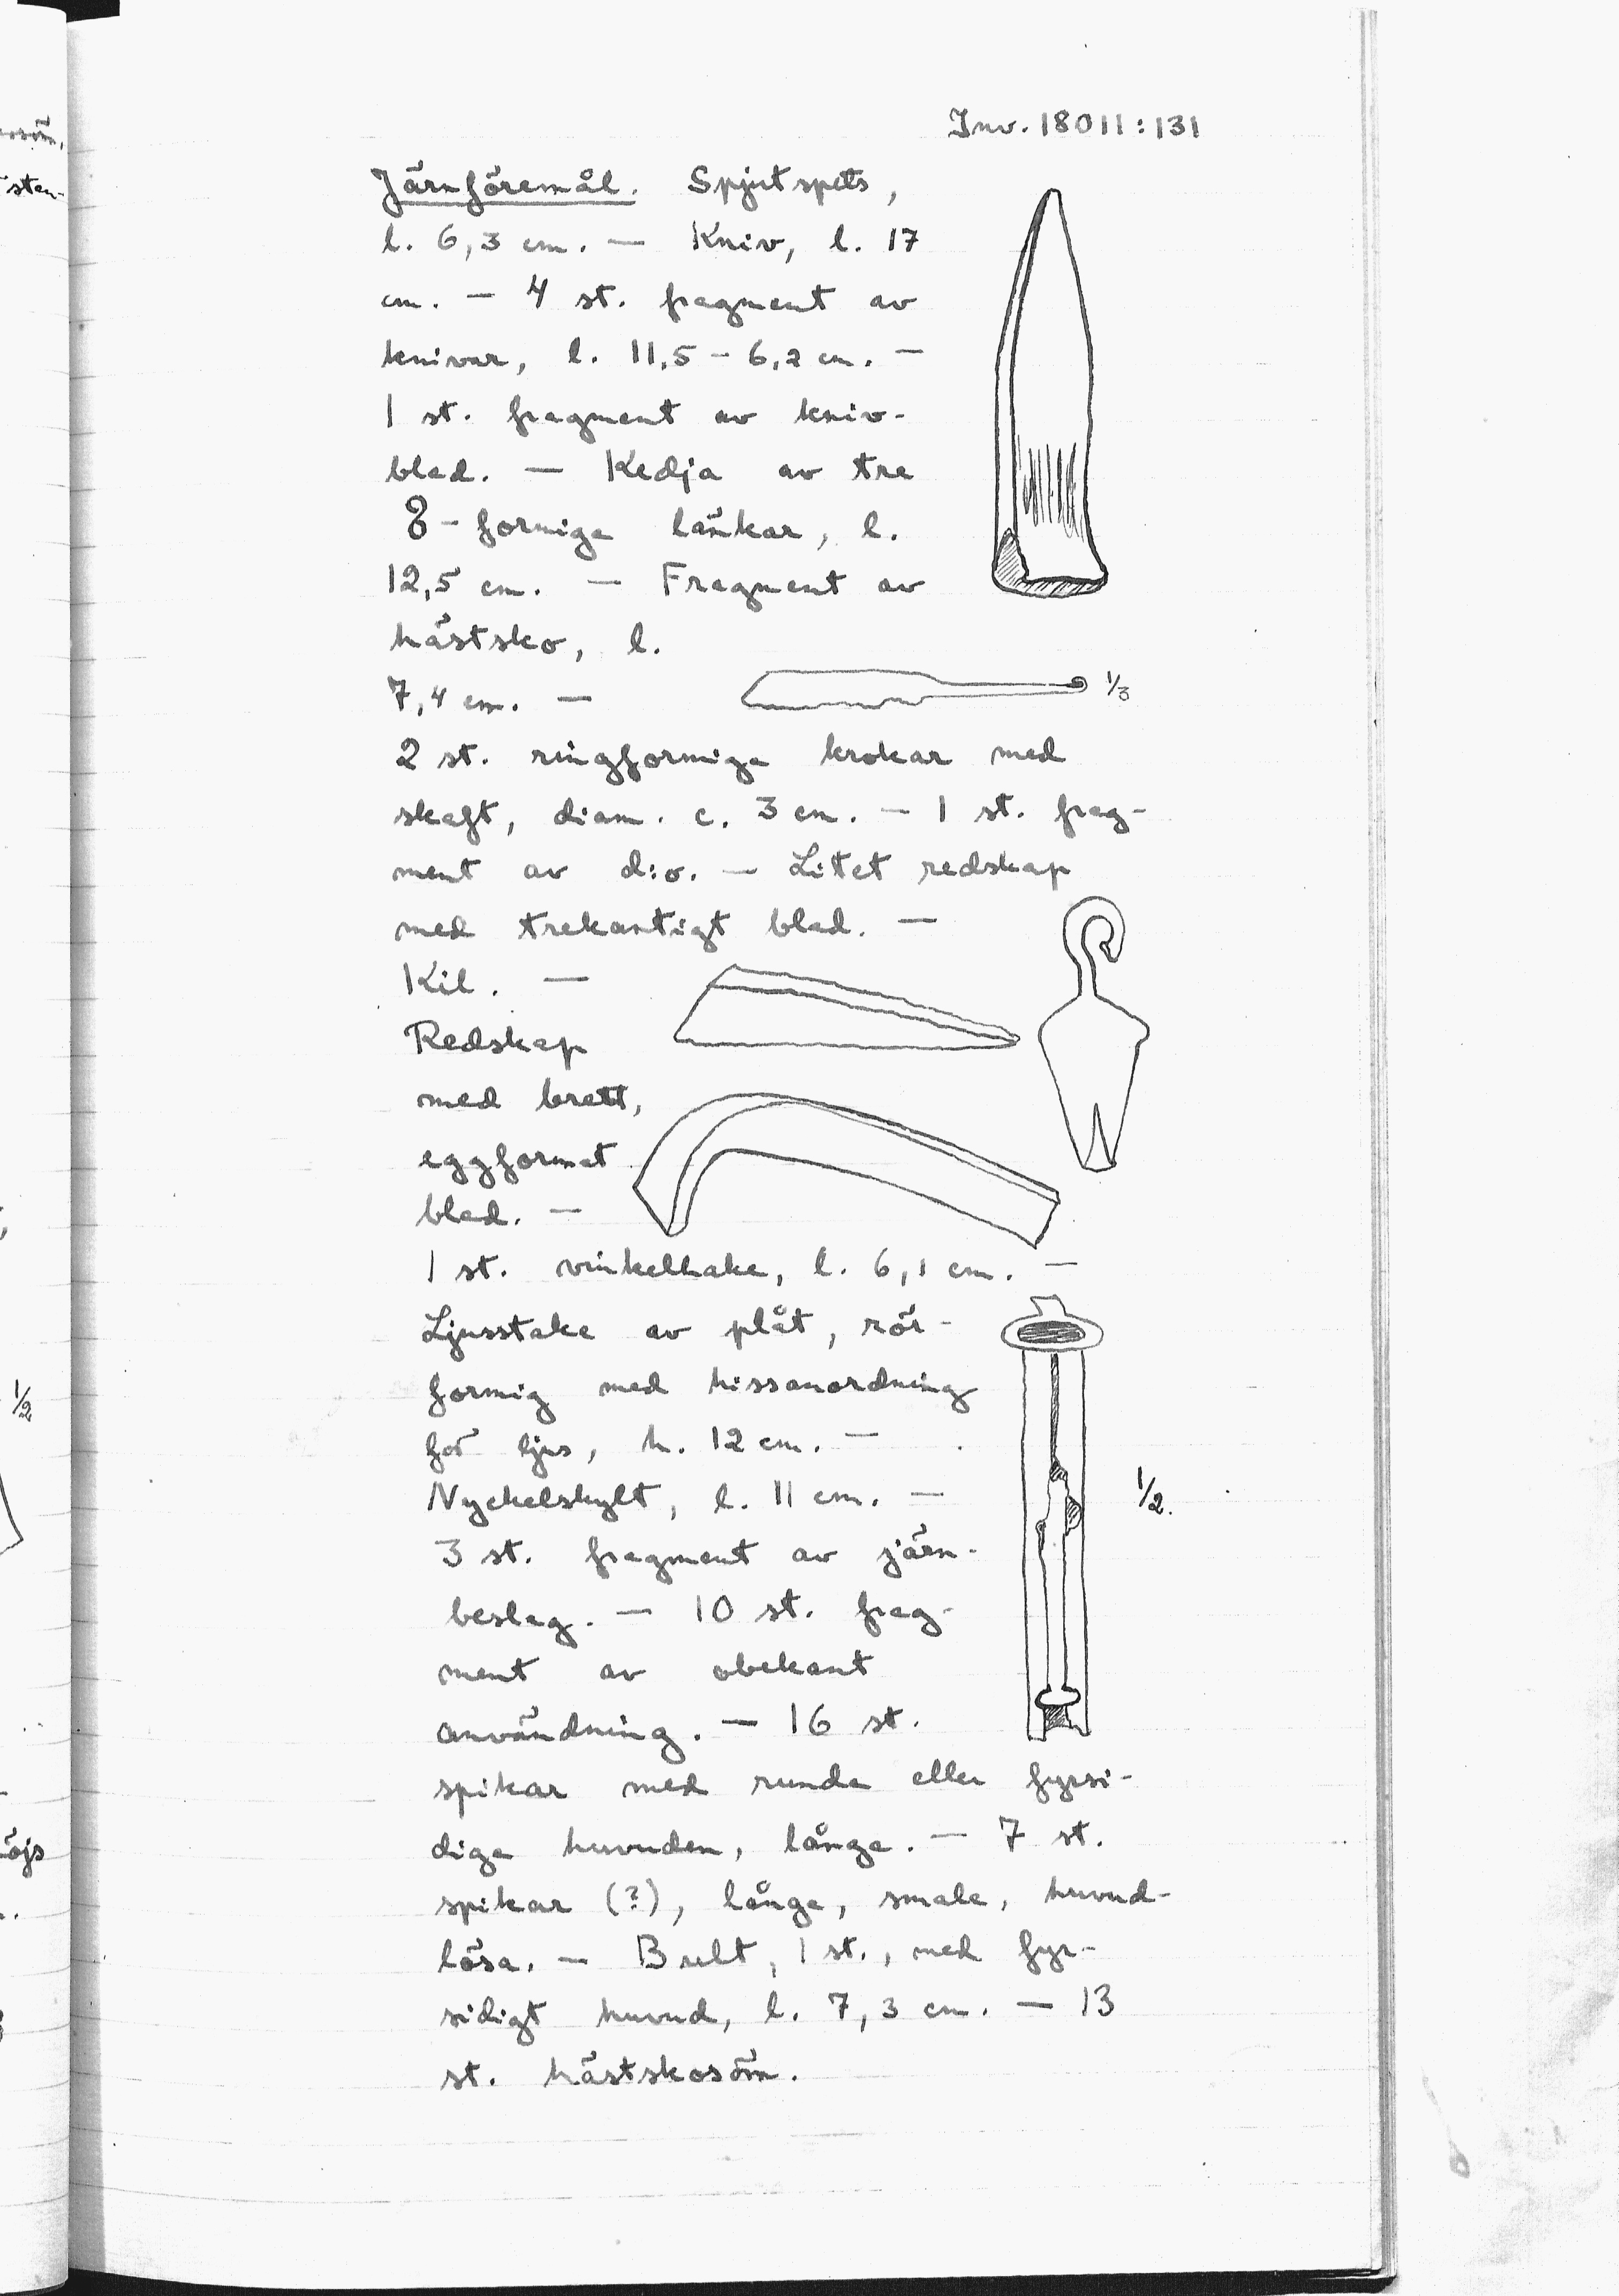 Inv. 18011:131
Järnföremål. Spjutspets,
l. 6,3 cm. — Kniv, l. 17
cm. — 4 st. fragment av
knivar, l. 11,5 - 6,2 cm. —
1 st. fragment av kniv-
blad. — Kedja av tre
8-formiga länkar, l.
12,5 cm. — Fragment av
hästsko, l.
7,4 cm. —
1/3
2 st. ringformiga krokar med
skaft, diam. c. 3 cm. — 1 st. frag-
ment av d:o. — Litet redskap
med trekantigt blad. —
Kil. —
Redskap
med brett,
eggformat
blad. —
1 st. vinkelhake, l. 6,1 cm. —
Ljusstake av plåt, rör-
formig med hissanordning
för ljus, h. 12 cm. —
Nyckelskylt, l. 11 cm. —
1/2.
3 st. fragment av järn-
beslag. — 10 st. frag-
ment av obekant
användning. — 16 st.
spikar med runda eller fyrsi-
diga huvuden, långa. — 7 st.
spikar (?), långa, smala, huvud-
lösa. — Bult, 1 st., med fyr-
sidigt huvud, l. 7,3 cm. — 13
st. hästskosöm.
sten-
1/2